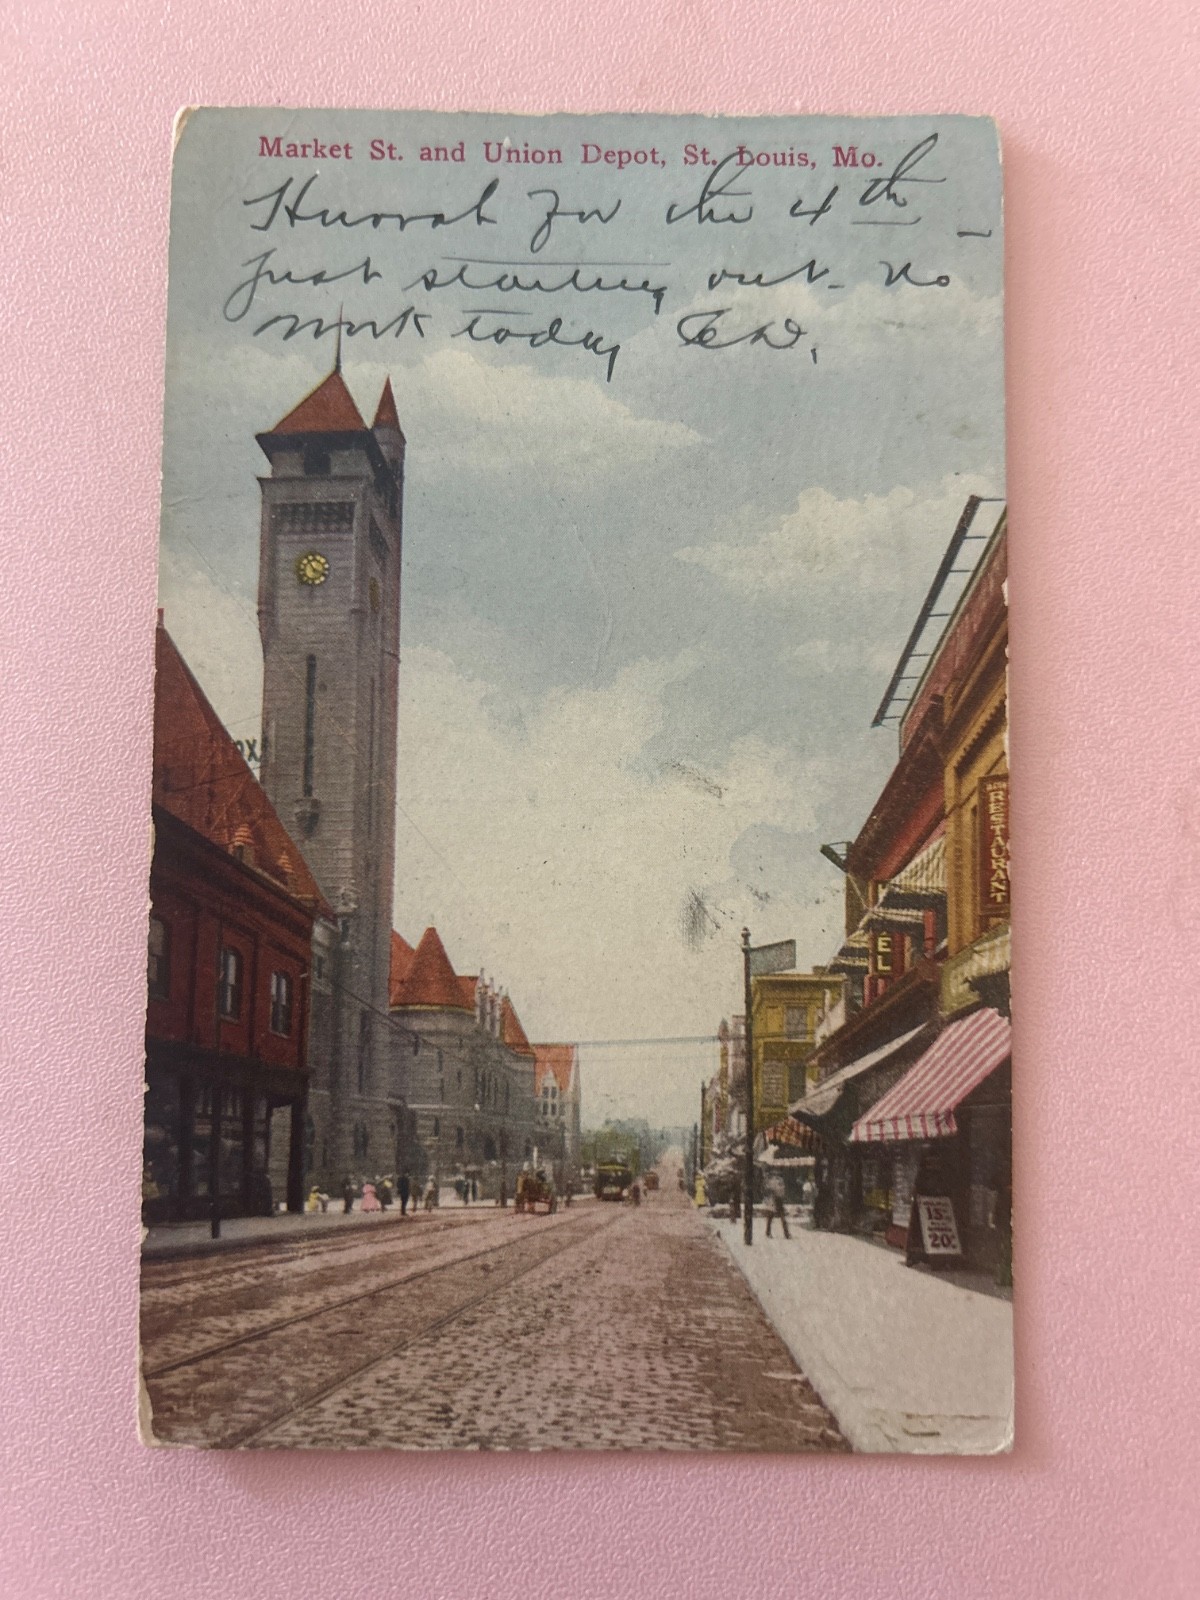 Market St. and Union Depot, St. Louis, Mo.
Hurrah for the 4th –
just starting out – No
work today
RESTAURANT
EL
15¢
20¢